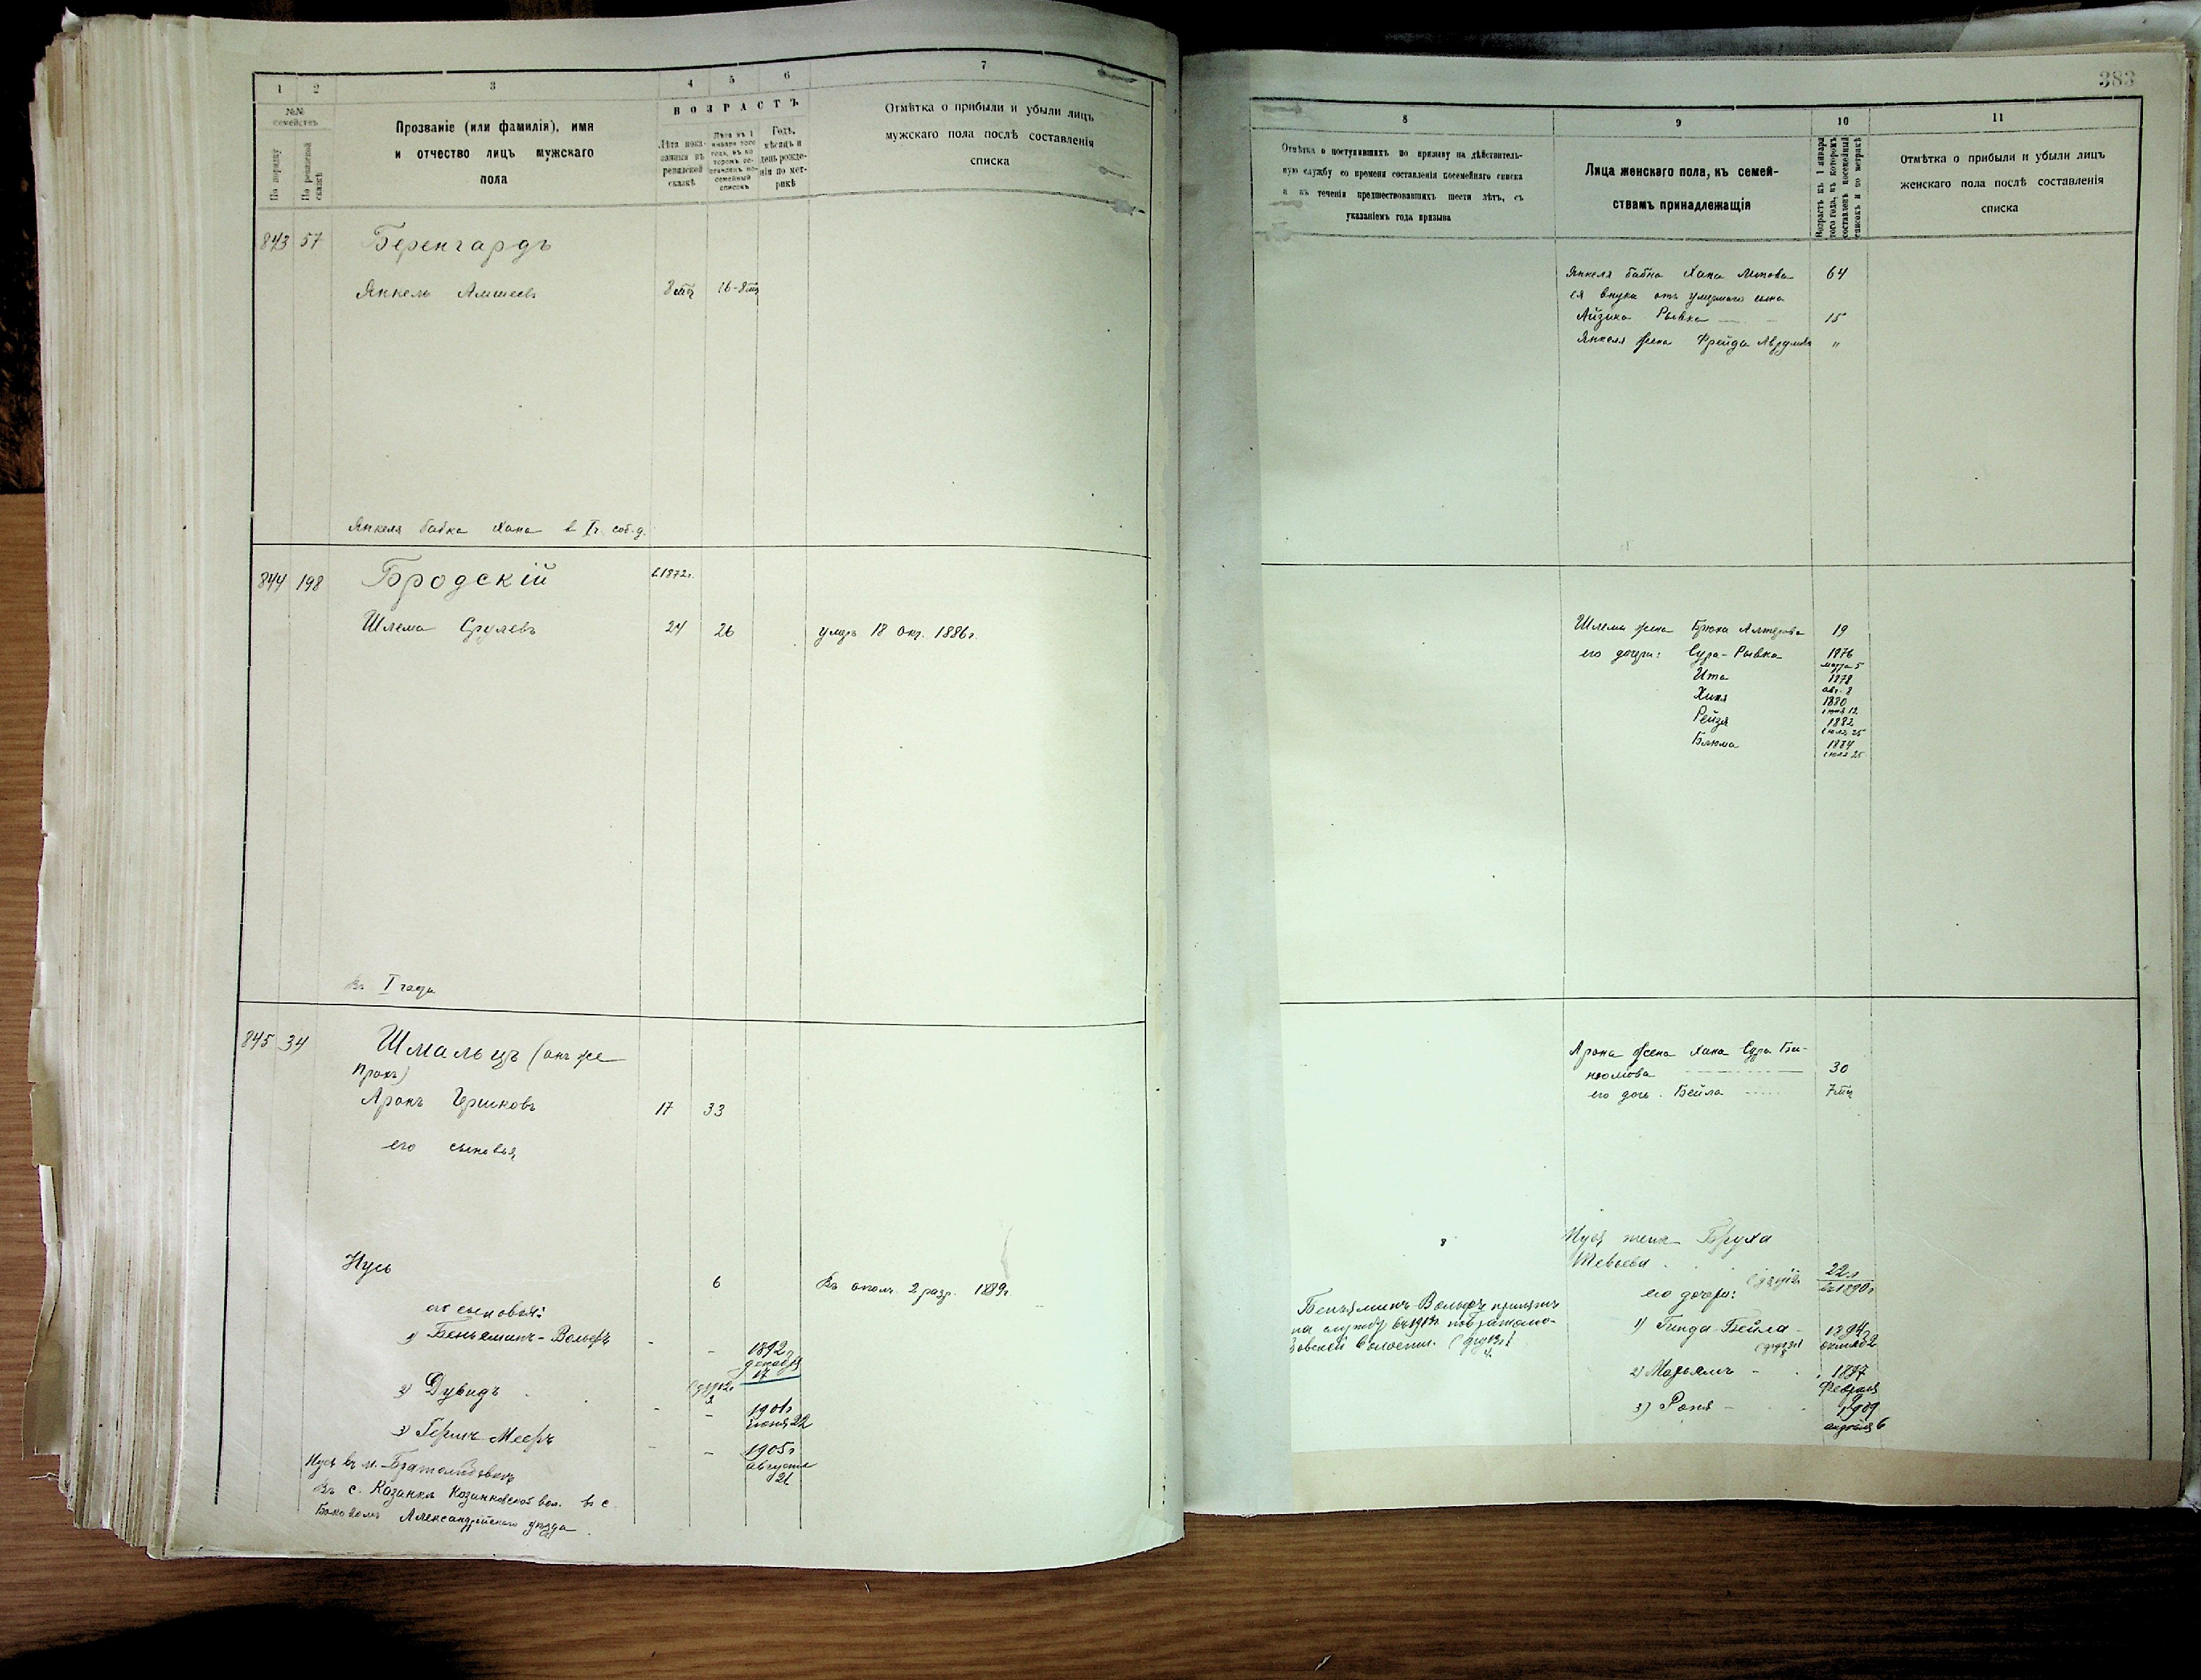 1 2 3 4 5 6 7
№№ семействъ
По порядку
По ревизской сказкѣ
Прозваніе (или фамилія), имя
и отчество лицъ мужскаго
пола
ВОЗРАСТЪ
Лѣта пока-
занныя въ
ревизской
сказкѣ
Лѣта къ 1
января того
года, въ ко
торомъ со-
ставленъ по-
семейный
списокъ
Годъ,
мѣсяцъ и
день рожде-
нія по мет-
рикѣ
Отмѣтка о прибыли и убыли лицъ
мужскаго пола послѣ составленія
списка
843 57 Беренгардъ
Янкель Амшеевъ 8 мц 16-8 мц
Янкеля бабка Хана в I ч.
844 198 Бродскій с 1872 г.
Шлема Срулевъ 24 26 умеръ 18 окт. 1886 г.
Въ I части
845 34 Шмальцъ (онъ же
Пракъ)
Аронъ Гершковъ 17 33
его сыновья
Нусь 6 Въ ополч. 2 разр. 1889 г.
его сыновья:
1) Беньяминъ-Вольфъ - - 1892 г.
декабря
17
2) Дувидъ - - 1901 г
іюня 22
3) Гершъ-Мееръ - - 1905 г
августа
21
Въ с. Казанкѣ Казанковской вол. въ с.
Боковомъ Александрійскаго уѣзда
383
8 9 10 11
Отмѣтка о поступившихъ по призыву на дѣйствитель-
ную службу со времени составленія посемейнаго списка
и въ теченіи предшествовавшихъ шести лѣтъ, съ
указаніемъ года призыва
Лица женскаго пола, къ семей-
ствамъ принадлежащія
Возрастъ къ 1 января
того года, въ которомъ
составленъ посемейный
списокъ и по метрикѣ
Отмѣтка о прибыли и убыли лицъ
женскаго пола послѣ составленія
списка
Янкеля бабка Хана 64
ея внука отъ умершаго сына
Айзика Рывка 15
Янкеля жена Фрейда "
Шлемы жена 19
его дочери: Сура-Рывка 1876
марта 5
Ита 1878
авг. 8
Хиня 1880
іюня 12
Рейзя 1882
іюля 25
Блюма 1884
іюля 25
Арона жена Хана Сура Бе-
30
его дочь Бейла 7 мц
Нуся жена Бруха
22 л
въ 1890 г
его дочери:
Беньяминъ Вольфъ принятъ
на службу въ
1) Гинда-Бейла - 1894 г
октяб 2
2) Марьямъ - 1897
Февраля
3) Роня - 1909
апрѣля 6